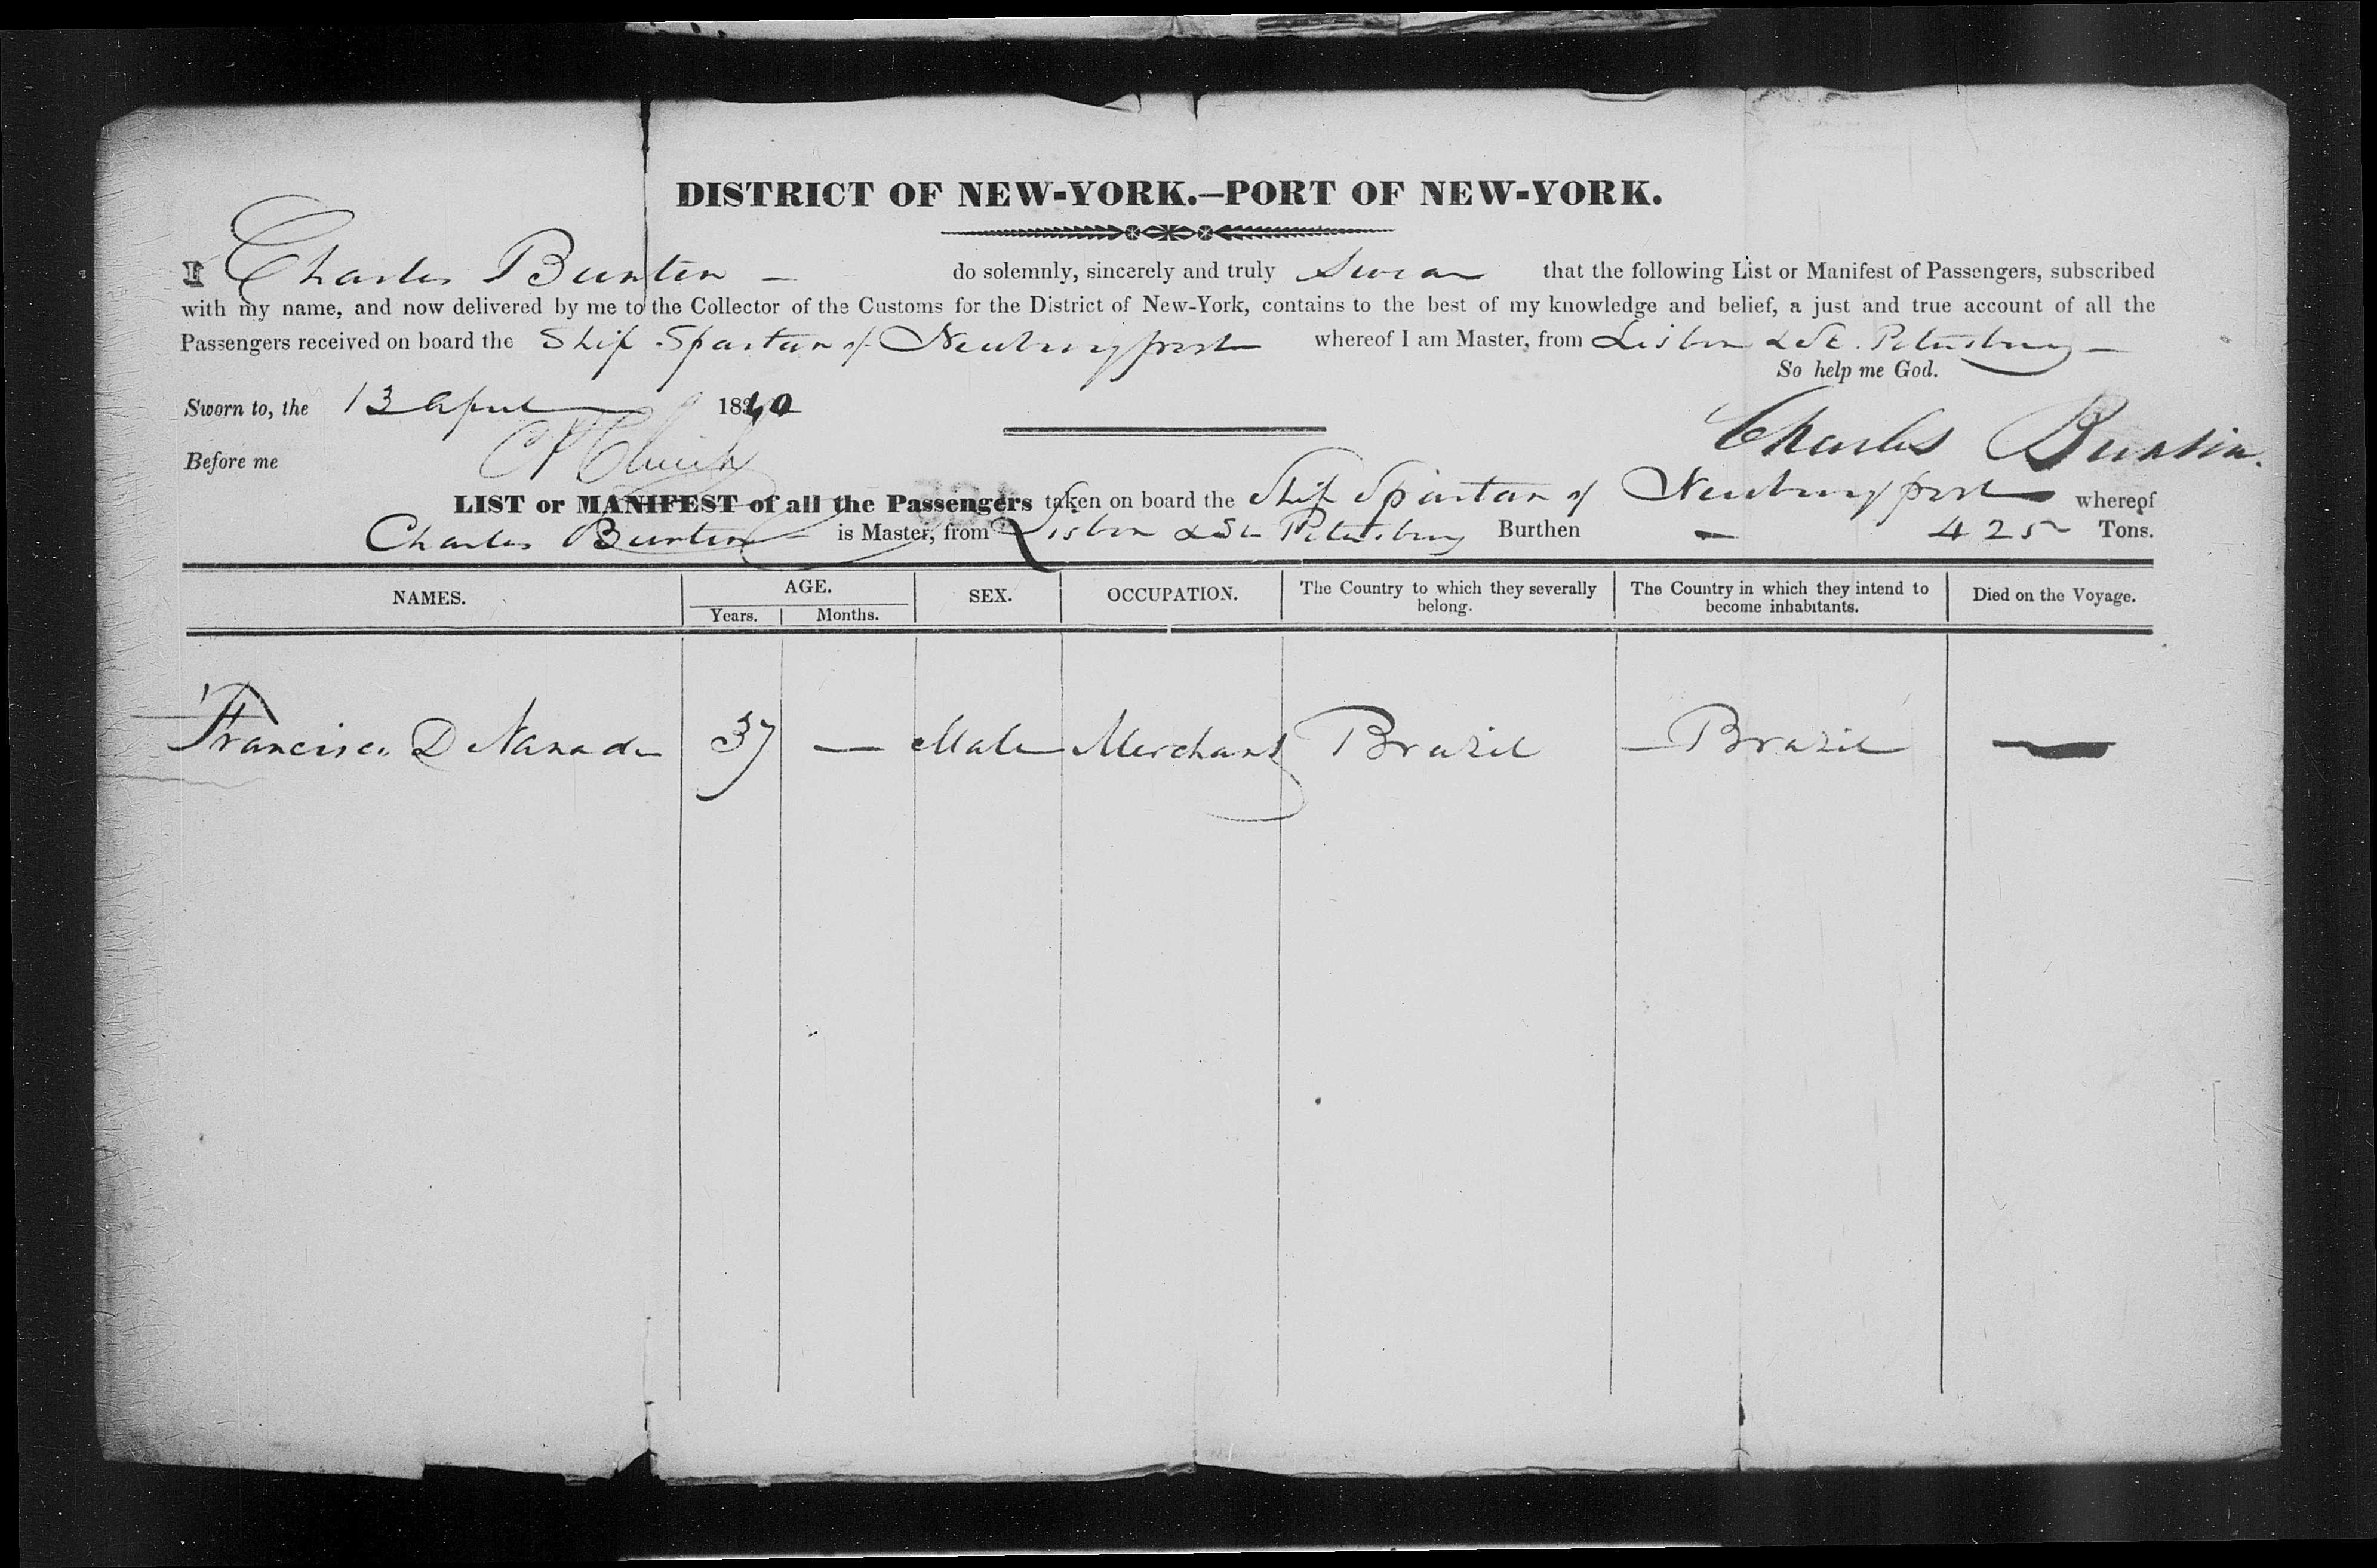 DISTRICT OF NEW-YORK.—PORT OF NEW-YORK.
I Charles Bunten — do solemnly, sincerely and truly Swear that the following List or Manifest of Passengers, subscribed
with my name, and now delivered by me to the Collector of the Customs for the District of New-York, contains to the best of my knowledge and belief, a just and true account of all the
Passengers received on board the Ship Spartan of Newburyport whereof I am Master, from Lisbon & St. Petersburg —
So help me God.
Sworn to, the 13 April 1840
Charles Buntin.
Before me
LIST or MANIFEST of all the Passengers taken on board the Ship Spartan of Newburyport whereof
Charles Bunten is Master, from Lisbon & St Petersburg Burthen — 425 Tons.
NAMES. AGE. SEX. OCCUPATION. The Country to which they severally belong. The Country in which they intend to become inhabitants. Died on the Voyage.
Years. Months.
Francisco D 37 — Male Merchant Brazil — Brazil —